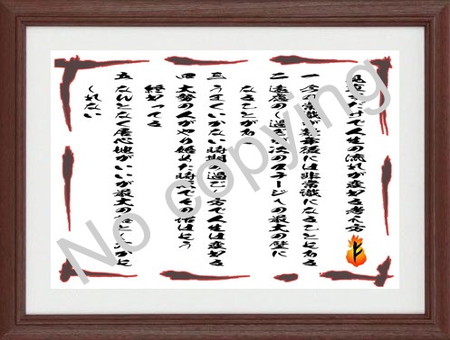 見直すだけで人生の流れが変わる考え方
一 今の常識が数年後には非常識になることもある
二 遠慮のし過ぎが次のステージへの最大の壁に
なることがある
三 うまくいかない時期の過ごし方で人生は変わる
四 大勢の人がやり始めた時、すべての話はもう
終わってる
五 なんとなく居心地がいいが最大の
しれない
No copying